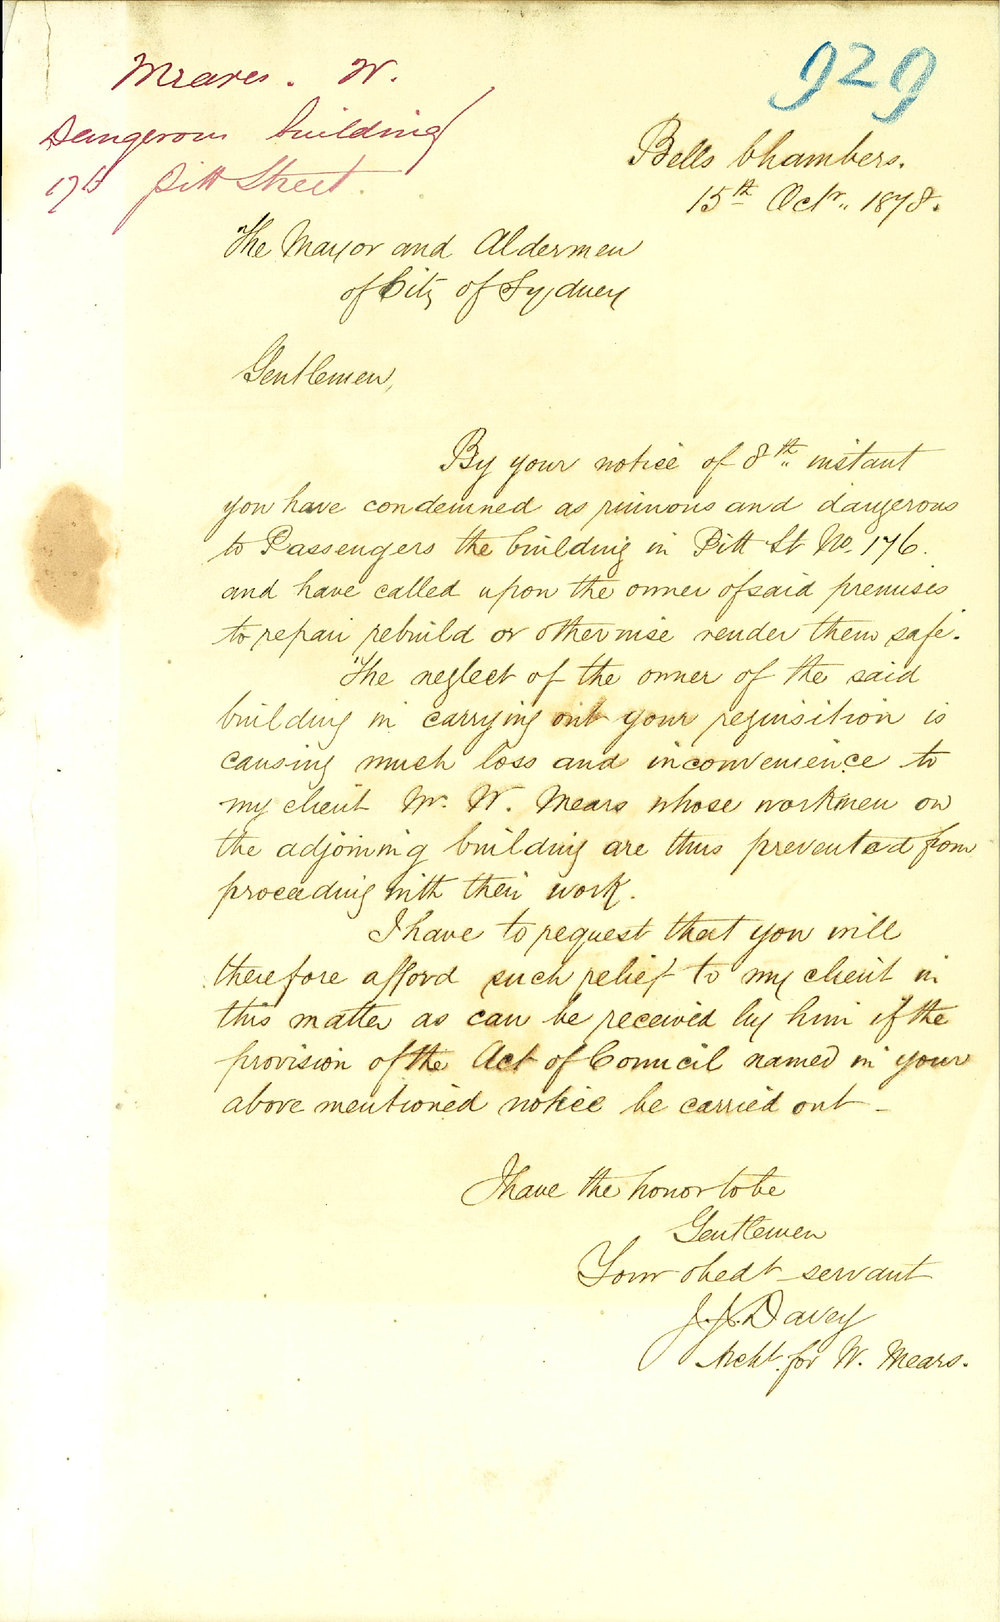 Mears. W.
Dangerous building
176 Pitt Street.
929
Bells Chambers.
15th Octr. 1878.
The Mayor and Aldermen
of City of Sydney
Gentlemen,
By your notice of 8th instant
you have condemned as ruinous and dangerous
to Passengers the building in Pitt St No. 176.
and have called upon the owner of said premises
to repair rebuild or otherwise render them safe.
The neglect of the owner of the said
building in carrying out your requisition is
causing much loss and inconvenience to
my client Mr. W. Mears whose workmen on
the adjoining building are thus prevented from
proceeding with their work.
I have to request that you will
therefore afford such relief to my client in
this matter as can be received by him if the
provision of the Act of Council named in your
above mentioned notice be carried out -
I have the honor to be
Gentlemen
Your obedt servant
J. J. Davey
Archt. for W. Mears.